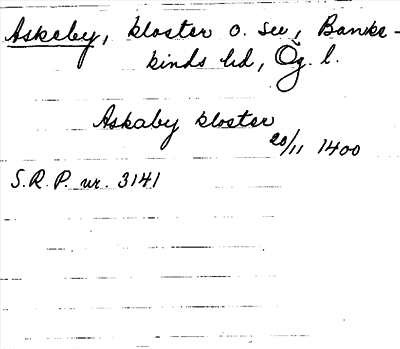 Askeby, kloster o. sn, Banke-
kinds hd, Ög. l.
Askaby kloster
20/11 1400
S.R.P. nr. 3141